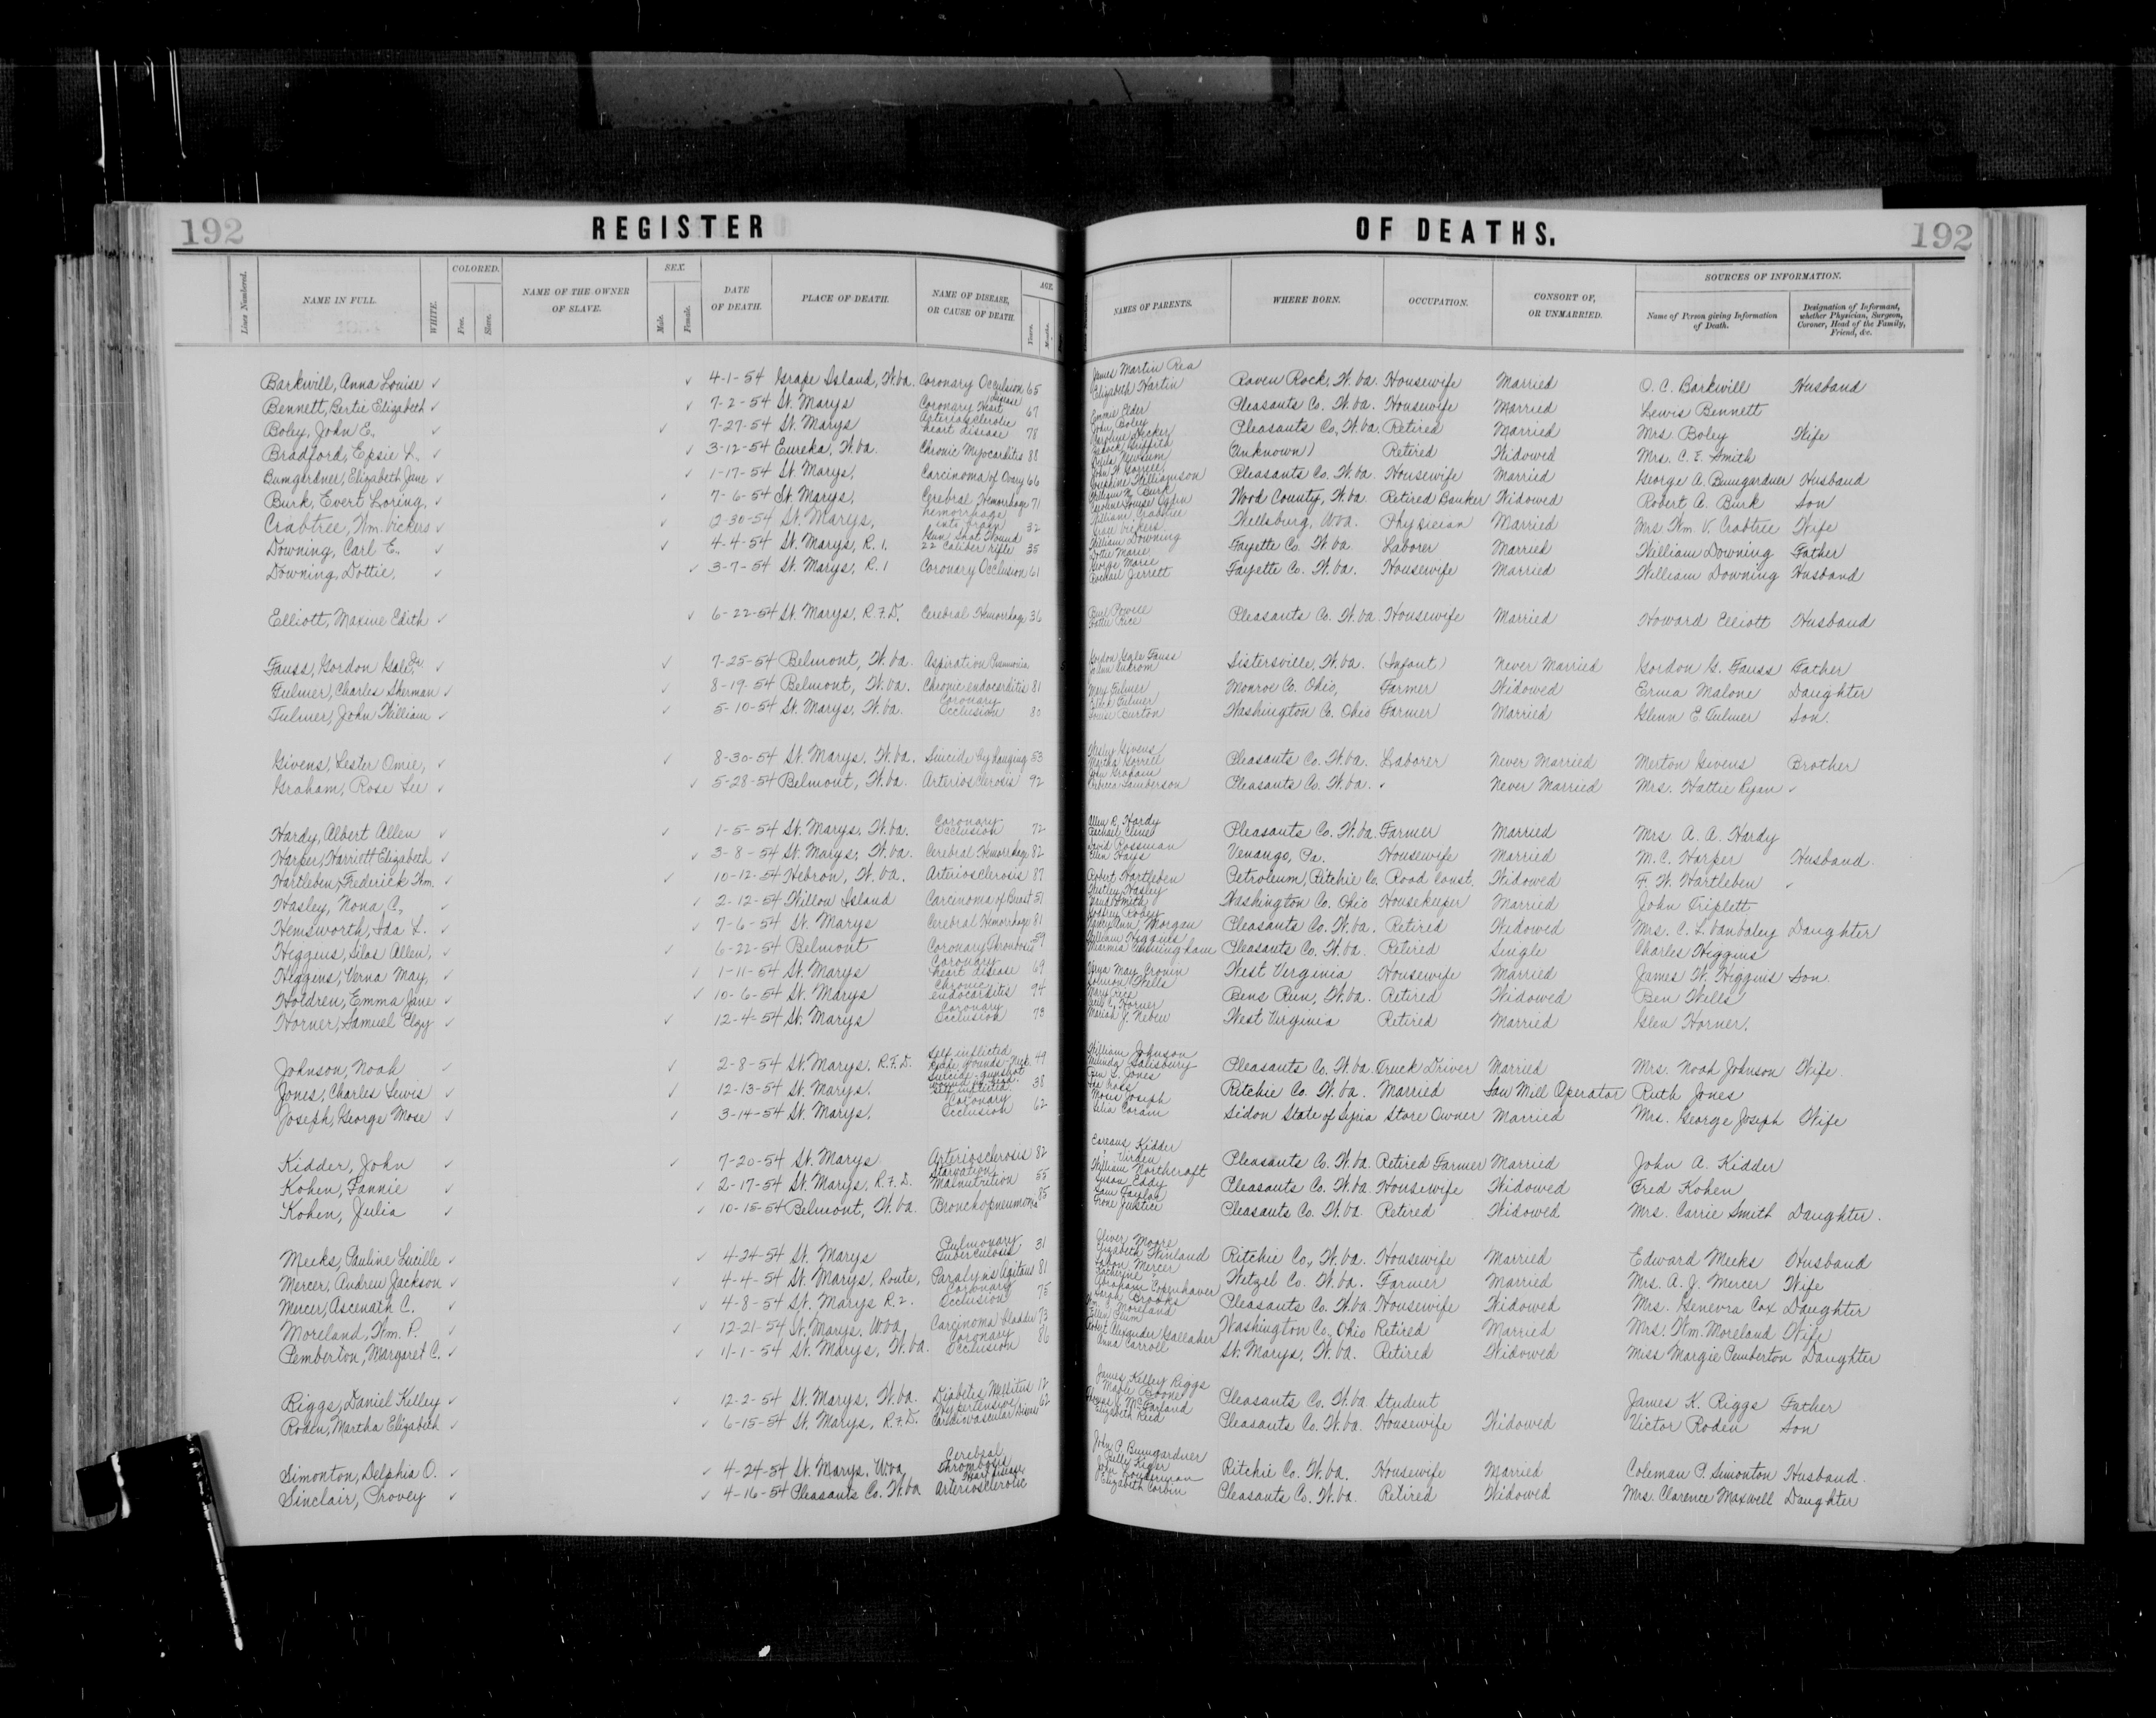 192 REGISTER OF DEATHS. 192
Lines Numbered. NAME IN FULL. WHITE. COLORED. Free. Slave. NAME OF THE OWNER OF SLAVE. SEX. Male. Female. DATE OF DEATH. PLACE OF DEATH. NAME OF DISEASE, OR CAUSE OF DEATH. AGE. Years. Months. NAMES OF PARENTS. WHERE BORN. OCCUPATION. CONSORT OF, OR UNMARRIED. SOURCES OF INFORMATION. Name of Person giving Information of Death. Designation of Informant, whether Physician, Surgeon, Coroner, Head of the Family, Friend, &c.
Barkwill, Anna Louise ✓ ✓ 4-1-54 Grape Island, W.Va. Coronary Occulsion 65 James Martin Rea Elizabeth Martin Raven Rock, W.Va. Housewife Married O. C. Barkwill Husband
Bennett, Bertie Elizabeth ✓ ✓ 7-2-54 St. Marys Coronary Heart Disease 67 Emma Elder Pleasants Co. W.Va. Housewife Married Lewis Bennett
Boley, John E., ✓ ✓ 7-27-54 St. Marys Arteriosclerotic heart disease 78 John Boley Pleasants Co., W.Va. Retired Married Mrs. Boley Wife
Bradford, Epsie L. ✓ ✓ 3-12-54 Eureka, W.Va. Chronic Myocarditis 88 (Unknown) Retired Widowed Mrs. C. E. Smith
Bumgardner, Elizabeth Jane ✓ ✓ 1-17-54 St. Marys, Carcinoma of Ovary 66 Josephine Williamson Pleasants Co. W.Va. Housewife Married George A. Bumgardner Husband
Burk, Evert Loring, ✓ ✓ 7-6-54 St. Marys, Cerebral Hemorrhage 71 William N. Burk Caroline Louise Ogden Wood County, W.Va. Retired Banker Widowed Robert A. Burk Son
Crabtree, Wm. Vickers ✓ ✓ -30-54 St. Marys, hemorrhage into brain 32 William Crabtree Vickers Wellsburg, W.Va. Physician Married Mrs Wm. V. Crabtree Wife
Downing, Carl E., ✓ ✓ 4-4-54 St. Marys, R. 1, Gun Shot Wound 22 caliber rifle 35 William Downing Dottie Marie Fayette Co. W.Va. Laborer Married William Downing Father
Downing, Dottie, ✓ ✓ 3-7-54 St. Marys, R. 1 Coronary Occlusion 61 George Marie Rachael Jarrett Fayette Co. W.Va. Housewife Married William Downing Husband
Elliott, Maxine Edith ✓ ✓ 6-22-54 St. Marys, R.F.D. Cerebral Hemorrhage 36 Hattie Rice Pleasants Co. W.Va. Housewife Married Howard Elliott Husband
Fauss, Gordon Gale Jr. ✓ 7-25-54 Belmont, W.Va. Aspiration Pneumonia Gordon Gale Fauss Sistersville, W.Va. (Infant) Never Married Gordon G. Fauss Father
Fulmer, Charles Sherman ✓ ✓ 8-19-54 Belmont, W.Va. Chronic endocarditis 81 Mary Fulmer Monroe Co. Ohio, Farmer Widowed Erma Malone Daughter
Fulmer, John William ✓ ✓ 5-10-54 St. Marys, W.Va. Coronary Occlusion 80 Fulmer Louise Burton Washington Co. Ohio Farmer Married Glenn E. Fulmer Son.
Givens, Lester Omie, ✓ ✓ 8-30-54 St. Marys, W.Va. Suicide by hanging 53 Wesley Givens Martha Gorrell Pleasants Co. W.Va. Laborer Never Married Merton Givens Brother
Graham, Rose Lee ✓ ✓ 5-28-54 Belmont, W.Va. Arteriosclerosis 92 John Graham Rebecca Lamberson Pleasants Co. W.Va. ✓ Never Married Mrs. Hattie Ryan ✓
Hardy, Albert Allen ✓ ✓ 1-5-54 St. Marys, W.Va. Coronary Occlusion 72 Allen R. Hardy Rachael Cline Pleasants Co. W.Va. Farmer Married Mrs. A. A. Hardy
Harper, Harriett Elizabeth ✓ ✓ 3-8-54 St. Marys, W.Va. Cerebral Hemorrhage 82 David Rossman Ellen Hays Venango, Pa. Housewife Married M. C. Harper Husband.
Hartleben, Frederick Wm. ✓ ✓ 10-12-54 Hebron, W.Va. Arteriosclerosis 87 Robert Hartleben Petroleum, Ritchie Co. Road Const. Widowed F. W. Hartleben ✓
Hasley, Nona C., ✓ ✓ 2-12-54 Willow Island Carcinoma of Breast 51 Hasley Smith Washington Co. Ohio Housekeeper Married John Triplett
Hemsworth, Ida L. ✓ ✓ 7-6-54 St. Marys Cerebral Hemorrhage 81 Godfrey Robey Nancy Ann Morgan Pleasants Co. W.Va. Retired Widowed Mrs. C. L. Vanbaley Daughter
Higgins, Silas Allen, ✓ ✓ 6-22-54 Belmont Coronary Thrombosis 59 William Higgins Cunningham Pleasants Co. W.Va. Retired Single Charles Higgins
Higgins, Verna May, ✓ ✓ 1-11-54 St. Marys Coronary heart disease 69 Verna May Cronin West Virginia Housewife Married James W. Higgins Son.
Holdren, Emma Jane ✓ ✓ 10-6-54 St. Marys Chronic endocarsitis 94 Solomon Wells Mary Bens Run, W.Va. Retired Widowed Ben Wells
Horner, Samuel Elzy ✓ ✓ 12-4-54 St. Marys Coronary Occlusion 73 Horner Mariah J. West Virginia Retired Married Glen Horner.
Johnson, Noah ✓ ✓ 2-8-54 St. Marys, R.F.D. Self inflicted Knife Wounds-Neck 49 William Johnson Malinda Salisbury Pleasants Co. W.Va. Truck Driver Married Mrs. Noah Johnson Wife.
Jones, Charles Lewis ✓ ✓ 12-13-54 St. Marys. Suicide-gunshot wound of head. Self inflicted 38 Jones Ida Ross Ritchie Co. W.Va. Married Saw Mill Operator Ruth Jones
Joseph, George Mose ✓ ✓ 3-14-54 St. Marys. Coronary Occlusion 62 Moses Joseph Sidon State of Syria Store Owner Married Mrs. George Joseph Wife
Kidder, John ✓ ✓ 7-20-54 St. Marys Arteriosclerosis 82 Kidder Virden Pleasants Co. W.Va. Retired Farmer Married John A. Kidder
Kohen, Fannie ✓ ✓ 2-17-54 St. Marys, R.F.D. Starvation Malnutrition 55 William Northcraft Susan Eddy Pleasants Co. W.Va. Housewife Widowed Fred Kohen
Kohen, Julia ✓ ✓ 10-15-54 Belmont, W.Va. Bronchopneumonia 85 Sam Taylor Justice Pleasants Co. W.Va. Retired Widowed Mrs. Carrie Smith Daughter.
Meeks, Pauline Lucille ✓ ✓ 4-24-54 St. Marys Pulmonary Tuberculosis 31 Oliver Moore Elizabeth Winland Ritchie Co., W.Va. Housewife Married Edward Meeks Husband
Mercer, Andrew Jackson ✓ ✓ 4-4-54 St. Marys, Route, Paralyns Agitans 81 Mercer Catherine Wetzel Co. W.Va. Farmer Married Mrs. A. J. Mercer Wife
Mercer, Ascenath C. ✓ ✓ 4-8-54 St. Marys R. 2. Coronary Occlusion 75 Abraham Copenhaver Sarah Brooks Pleasants Co. W.Va. Housewife Widowed Mrs. Genevra Cox Daughter
Moreland, Wm. P. ✓ ✓ 12-21-54 St. Marys, W.Va. Carcinoma bladder 73 Wm. J. Moreland Ellen Plum Washington Co., Ohio Retired Married Mrs. Wm. Moreland Wife
Pemberton, Margaret C. ✓ ✓ 11-1-54 St. Marys, W.Va. Coronary Occlusion 86 Robert Alexander Gallaher Anna Carroll St. Marys, W.Va. Retired Widowed Miss Margie Pemberton Daughter
Riggs, Daniel Kelley ✓ ✓ 12-2-54 St. Marys, W.Va. Diabetes Mellitus 12 James Kelley Riggs Mable Boone Pleasants Co. W.Va. Student James K. Riggs Father
Roden, Martha Elizabeth ✓ ✓ 6-15-54 St. Marys, R.F.D. Hypertensive Cardiovascular Disease 62 McFarland Elizabeth Reed Pleasants Co. W.Va. Housewife Widowed Victor Roden Son
Simonton, Delphia O. ✓ ✓ 4-24-54 St. Marys, W.Va. Cerebral thrombosis John P. Bumgardner Belle Kiger Ritchie Co. W.Va. Housewife Married Coleman P. Simonton Husband.
Sinclair, Provey ✓ ✓ 4-16-54 Pleasants Co. W.Va Arteriosclerotic Heart Disease John Elizabeth Corbin Pleasants Co. W.Va. Retired Widowed Mrs. Clarence Maxwell Daughter